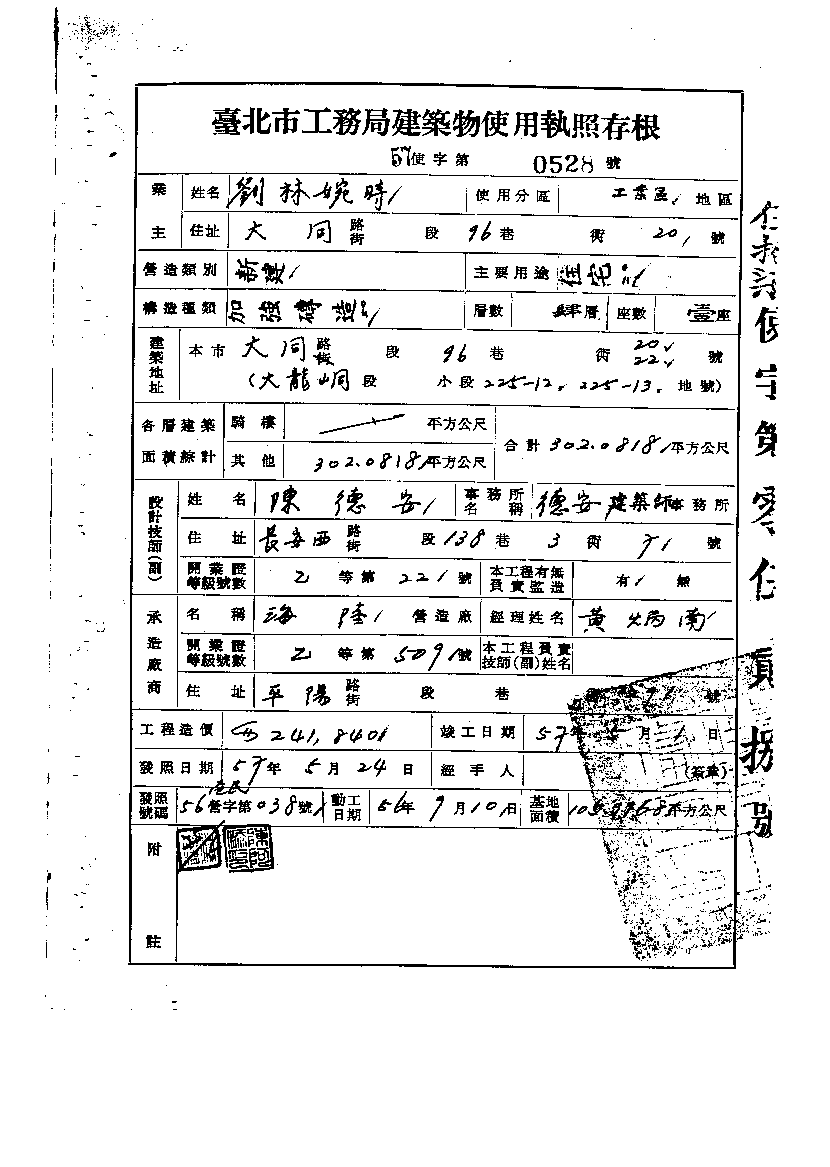 臺北市工務局建築物使用執照存根
57使字第 0528 號
業主 姓名 劉林婉時 使用分區 工業區 地區
住址 大同 路街 段 96巷 衖 20 號
營造類別 新建 主要用途 住宅
構造種類 加強磚造 層數 肆層 座數 壹座
建築地址 本市 大同 路街 段 96 巷 衖 20 22 號
(大龍峒段 小段 225-12. 225-13. 地號)
各層建築面積綜計 騎樓 平方公尺 合計 302.0818 平方公尺
其他 302.0818 平方公尺
設計技師(副) 姓名 陳德安 事務所名稱 德安建築師事務所
住址 長安西 路街 段 138 巷 3 衖 號
開業證等級號數 乙 等第 221 號 本工程有無負責監造 有 無
承造廠商 名稱 海陸 營造廠 經理姓名 黃炳南
開業證等級號數 乙 等第 509 號 本工程負責技師(副)姓名
住址 平陽 路街 段 巷 號
工程造價 241,840 竣工日期 57年 5 月 1 日
發照日期 57年 5月 24日 經手人 (簽章)
發照號碼 56 營字第 038號 動工日期 56年 9月10日 基地面積 平方公尺
附註
使字第零伍貳捌號